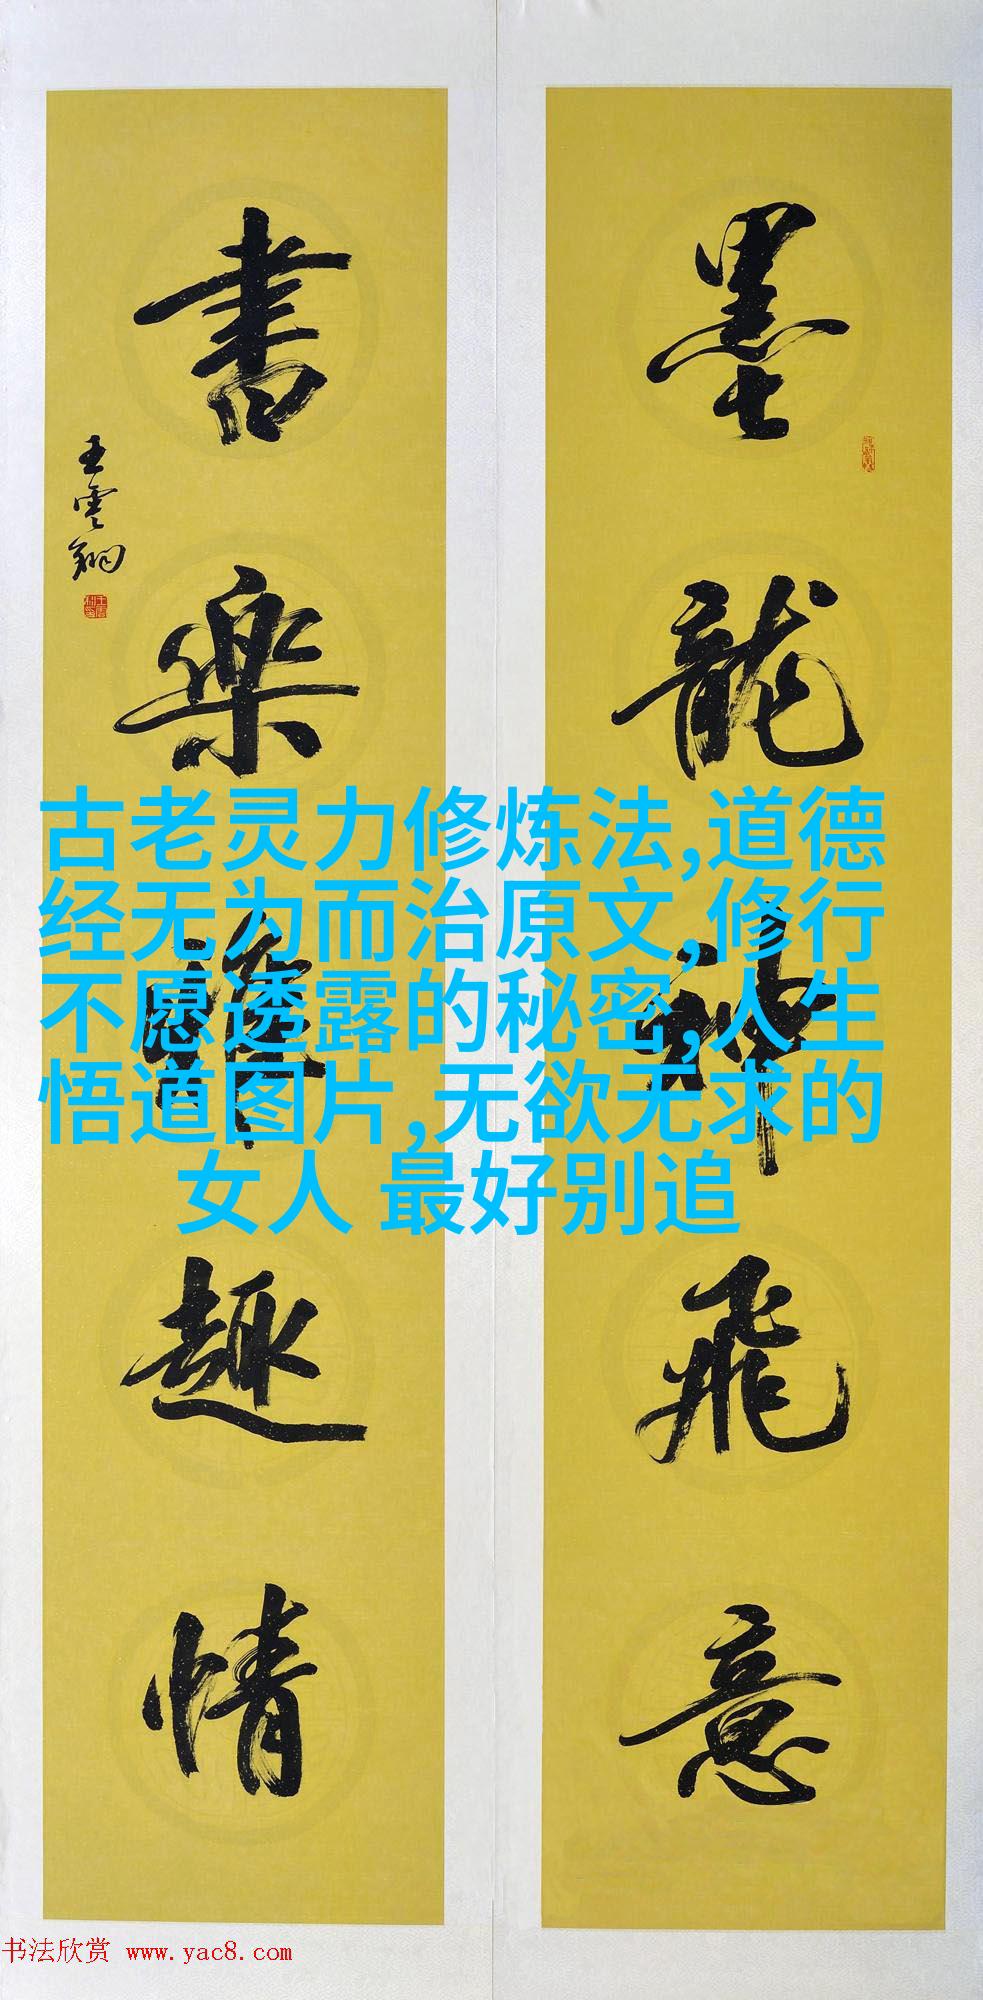 墨龍神飛意
書樂雅趣情
王雲翔
古老灵力修炼法,道德
经无为而治原文,修行
不愿透露的秘密,人生
悟道图片,无欲无求的
女人 最好别追
书法欣赏 www.yac8.com